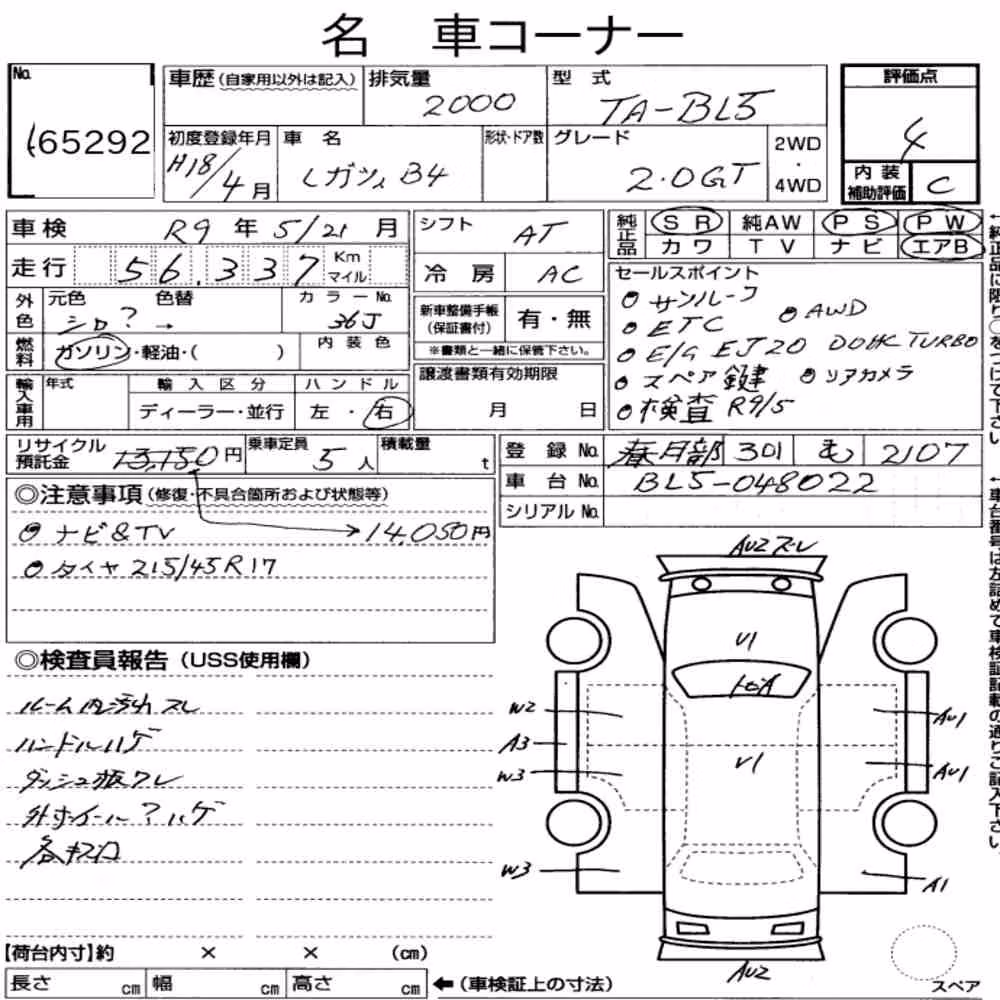 名 車コーナー
No.
65292
車歴(自家用以外は記入)
排気量
2000
型 式
TA-BL5
評価点
4
初度登録年月
H18/4月
車 名
レガシィ B4
形状・ドア数
グレード
2.0GT
2WD
・
4WD
内 装
補助評価
C
車検
R9 年 5/21 月
走行
56,337
Km
マイル
シフト
AT
冷 房
AC
純正品
SR 純AW PS PW
カワ TV ナビ エアB
外色
元色
シロ? →
色替
カラーNo.
36J
内 装 色
燃料
ガソリン・軽油・( )
新車整備手帳
(保証書付)
有・無
※書類と一緒に保管下さい。
セールスポイント
サンルーフ
AWD
ETC
E/G EJ20 DOHC TURBO
スペア鍵
リアカメラ
検査 R9/5
輸入車用
年式
輸 入 区 分
ディーラー・並行
ハ ン ド ル
左 ・ 右
譲渡書類有効期限
月 日
リサイクル
預託金
13,150円
乗車定員
5人
積載量
t
登 録 No.
春日部 301 む 2107
車 台 No.
BL5-048022
シリアル No.
◎注意事項(修復・不具合箇所および状態等)
ナビ&TV
14,050円
タイヤ 215/45R17
◎検査員報告(USS使用欄)
ルーム内汚れスレ
ハンドルハゲ
AU2 スレ
U1
W2
A3
W3
U1
AU1
AU1
W3
A1
AU2
【荷台内寸】約 × × (cm)
長さ cm 幅 cm 高さ cm
←(車検証上の寸法)
スペア